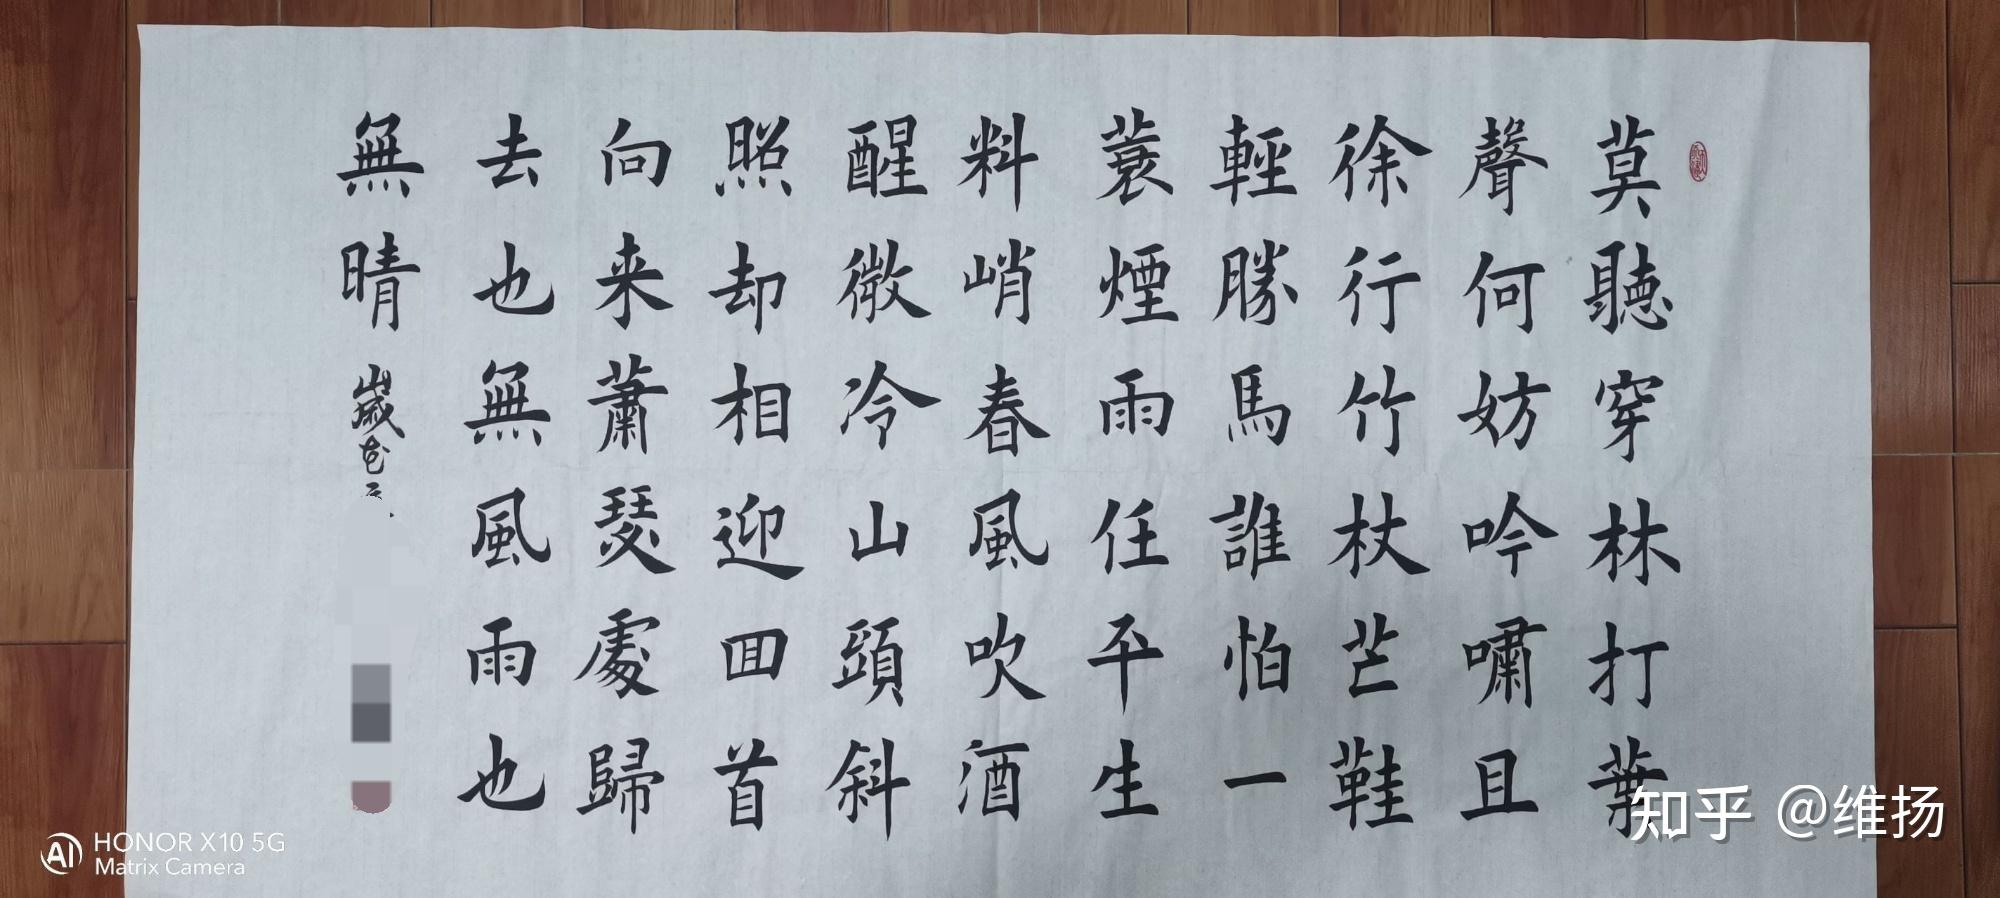 莫聽穿林打葉
聲何妨吟嘯且
徐行竹杖芒鞋
輕勝馬誰怕一
蓑煙雨任平生
料峭春風吹酒
醒微冷山頭斜
照却相迎囬首
向来蕭瑟處歸
去也無風雨也
無晴 歲在
知乎 @维扬
HONOR X10 5G
Matrix Camera